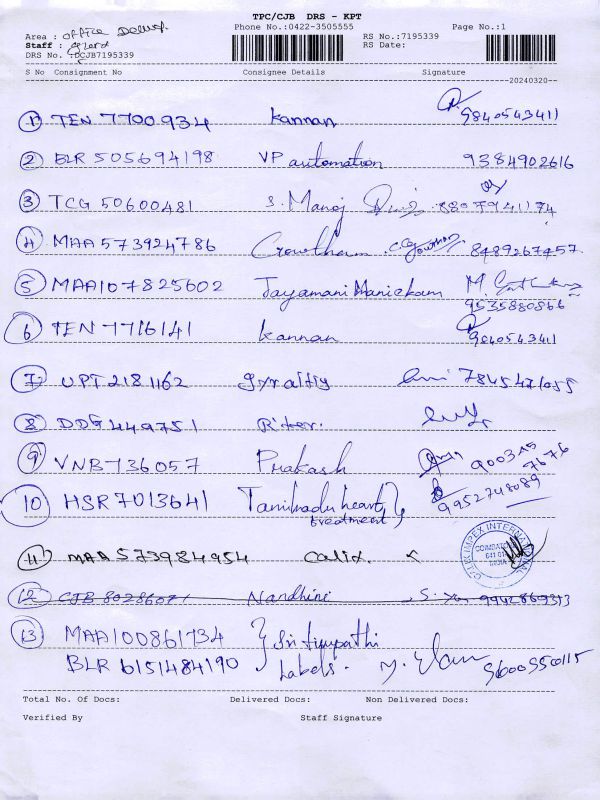 TPC/CJB DRS - KPT
Phone No.:0422-3505555 Page No.:1
Area : Office Delivery
Staff :
DRS No. TDCJB7195339
RS No.:7195339
RS Date:
S No Consignment No Consignee Details Signature
20240320
1 TEN 7700934 Kannan 9840543411
2 BLR 505694198 VP automation 9384902616
3 TCG 50600481 S. Manoj 8807941174
4 MAA 573924786 Gowtham 8489267457
5 MAA107825602 Jayamani Manickam M. 9535880866
6 TEN 7716141 Kannan 9840543411
7 UPT 2181162 7845471055
8 DDG 449751 Riter.
9 VNB 736057 Prakash 9003457676
10 HSR 7013641 Tamilnadu heart treatment 9952748089
11 MAA 573984954 Calix.
IMPEX INTERNATIONAL
COIMBATORE
INDIA
12 CJB 8028607 Nandhini 9942869313
13 MAA100861734 Sri tirupathi
BLR 6151484190 Labels. M. Elan 9600350115
Total No. Of Docs: Delivered Docs: Non Delivered Docs:
Verified By Staff Signature